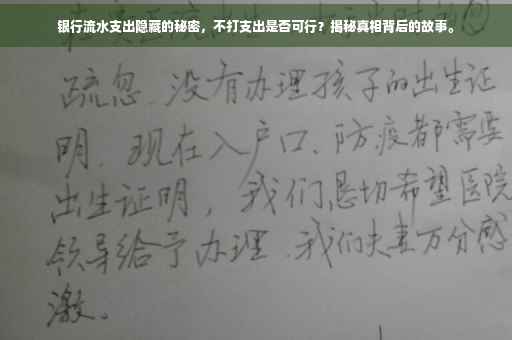 银行流水支出隐藏的秘密，不打支出是否可行？揭秘真相背后的故事。
疏忽、没有办理孩子的出生证
明、现在入户口、防疫都需要
出生证明，我们恳切希望医院
领导给予办理、我们夫妻万分感
激。